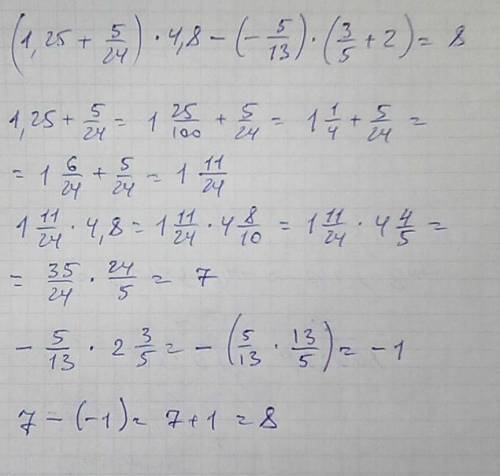 (1,25 + 5/24) · 4,8 - (-5/13) · (3/5 + 2) = 8
1,25 + 5/24 = 1 25/100 + 5/24 = 1 1/4 + 5/24 =
= 1 6/24 + 5/24 = 1 11/24
1 11/24 · 4,8 = 1 11/24 · 4 8/10 = 1 11/24 · 4 4/5 =
= 35/24 · 24/5 = 7
- 5/13 · 2 3/5 = - (5/13 · 13/5) = -1
7 - (-1) = 7 + 1 = 8